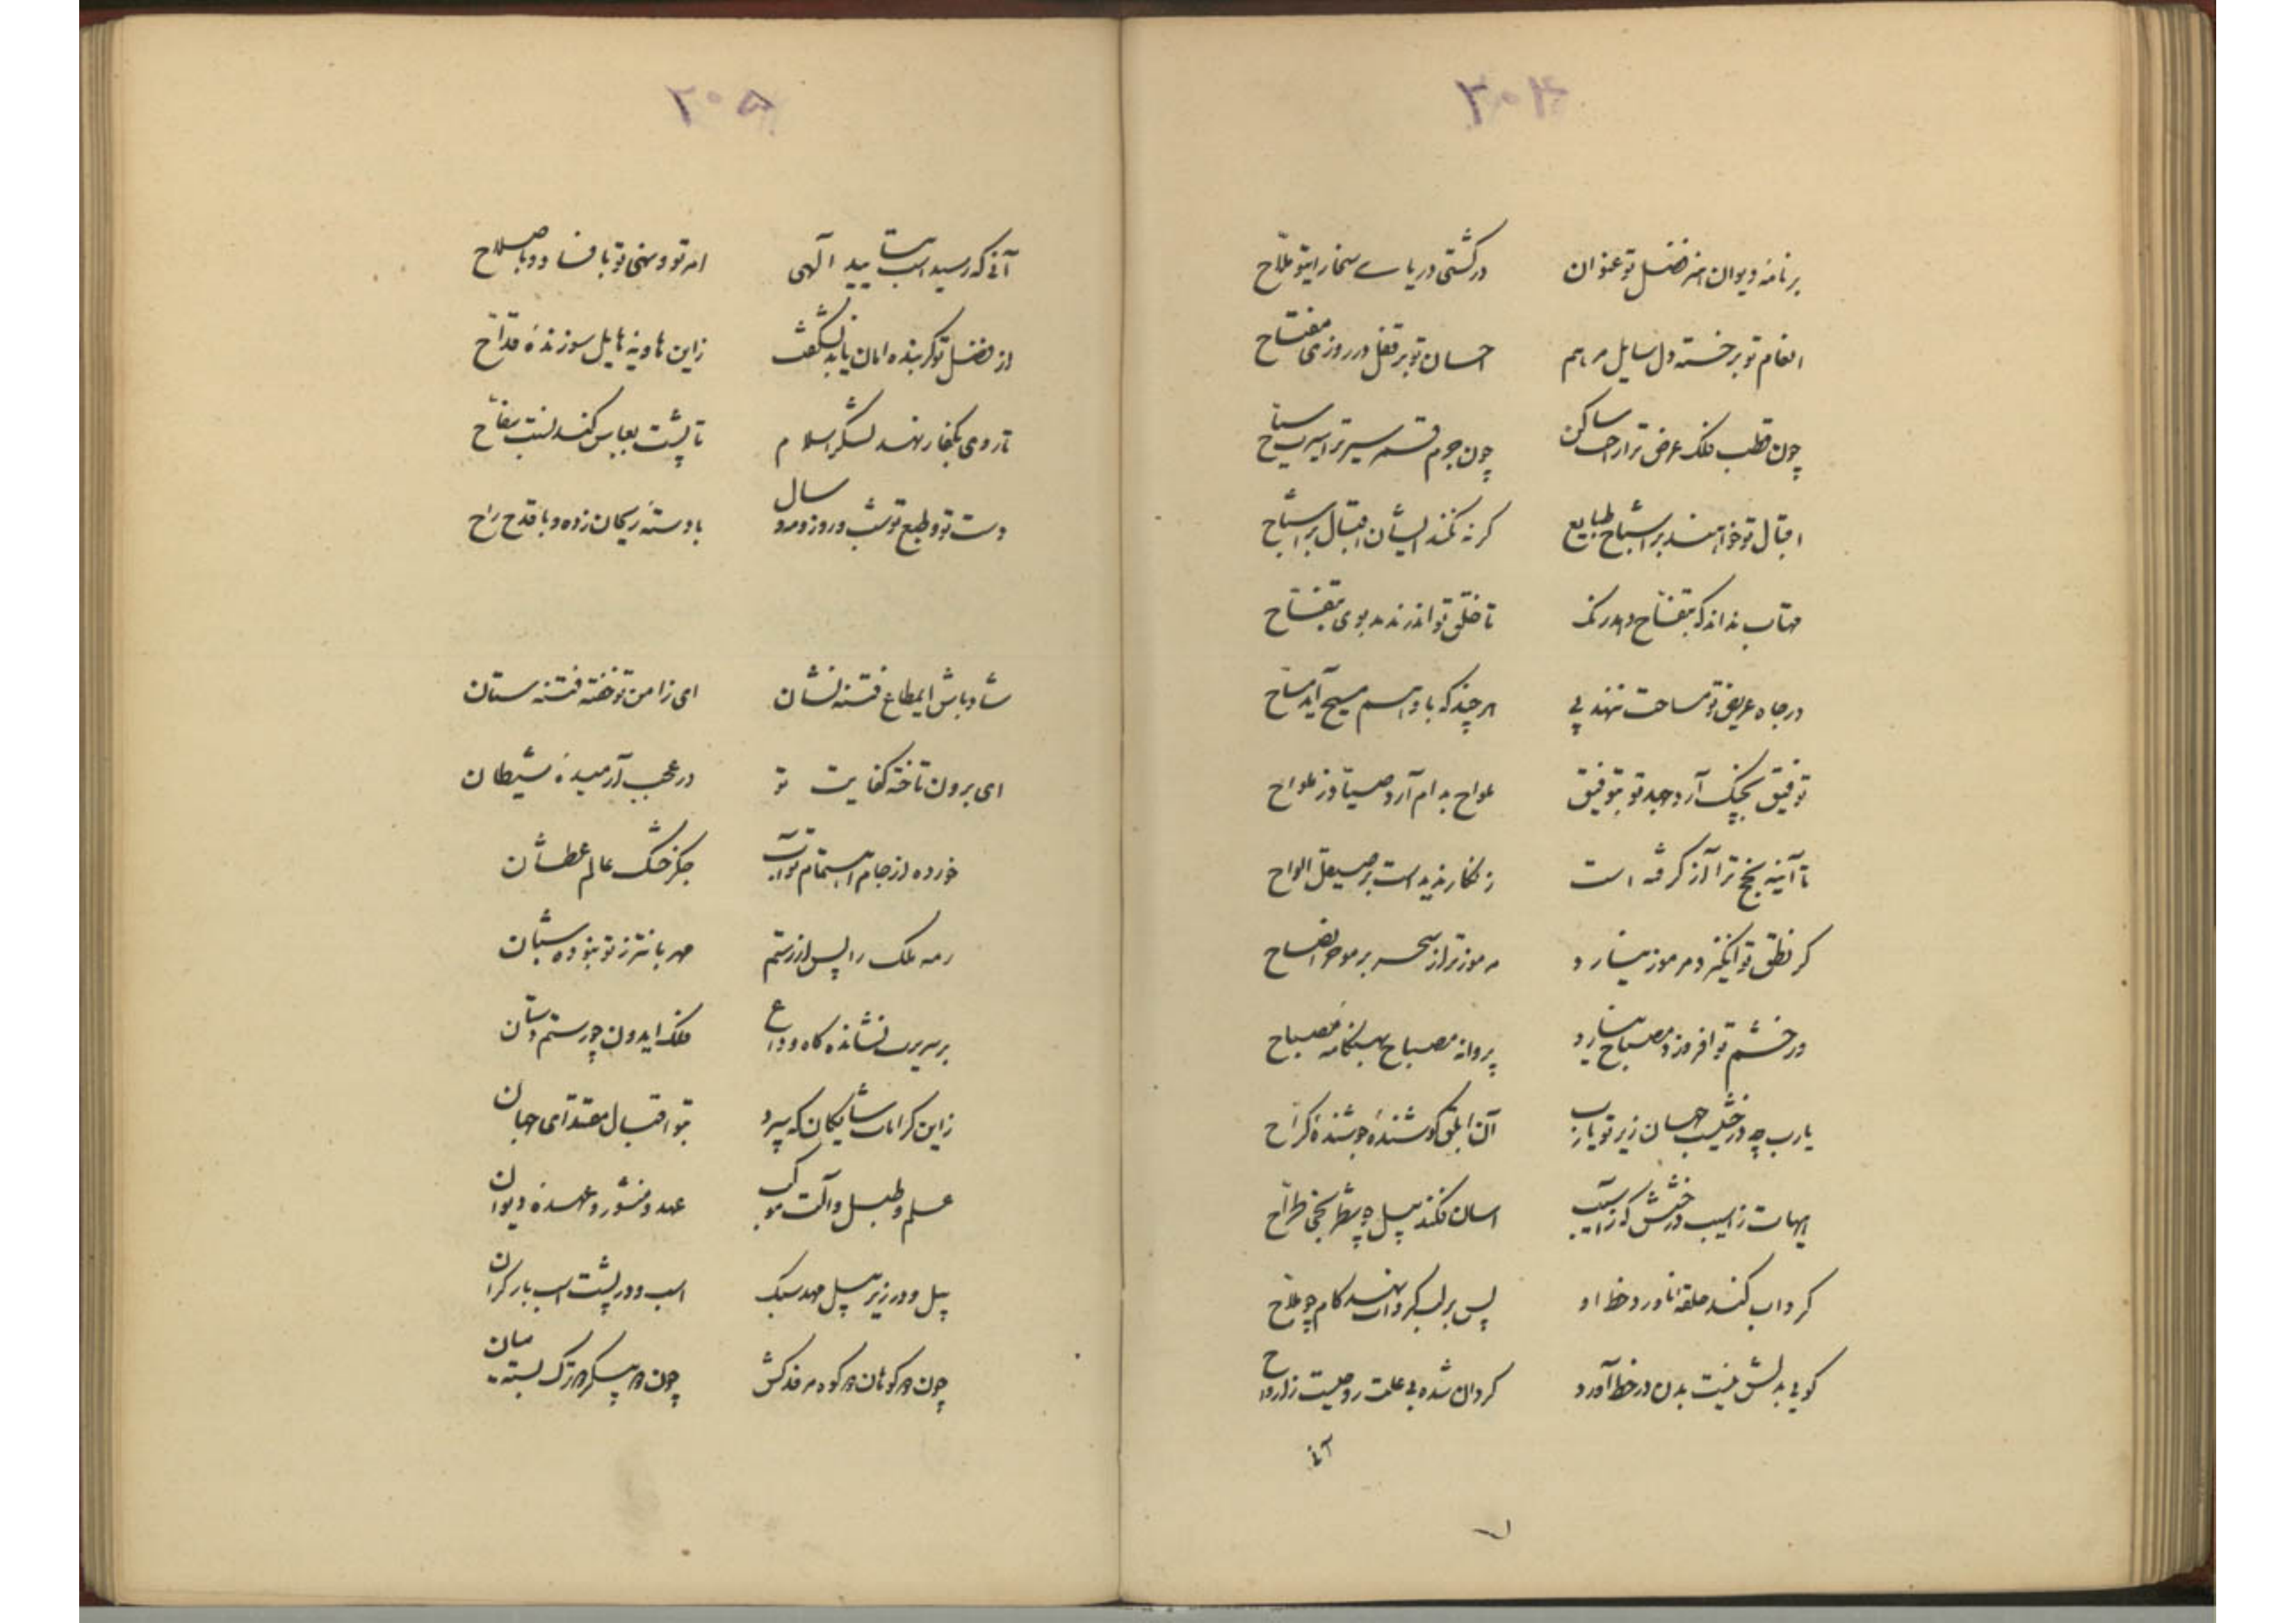 ۲۰۴
برنامه دیوان هنر فضل تو عنوان در کشتی دریای سخا رای تو ملاح
انعام تو بر خسته دل سایل مرهم احسان تو بر قفل در روزی مفتاح
چون قطب فلک عرض ترا راحت ساکن چون جرم قمر سیر ترا سیرت سیاح
اقبال تو خواهند بر اشباح طبایع کر نه نکند ایشان اقبال بر اشباح
مهتاب نداند که بتفاح دهد رنک تا خلق تو اندر ندمد بوی بتفاح
در جاه عریض تو مساحت ننهد پی هر چند که با او هم مسیح آید مساح
توفیق بچنک آرد جهد تو بتوفیق ملواح بدام آرد صیاد ز ملواح
تا آینه بخخ ترا آز کرفته است زنکار ندیده است بر صیقل الواح
کر نطق تو انکیزد مرموز نیارد مرموزتر از سحر بر موجز ایضاح
ور خشم تو افروزد مصباح نیارد پروانه مصباح بهنکامه مصباح
یارب چه درخشیست جهان زیر تو یارب آن ابلق کوشندهٔ جوشندهٔ کراح
هیهات ز اسیب درخشش که ز آسیب اسان فکند پیل چو شطرنجی طراح
کرداب کند حلقه ناورد خط او پس بر لب کرداب نهد کام چو ملاح
کوئی بدلش نیت بدن در خط آورد کردان شده بی علت روحیست ز ارواح
آنی
۲۰۵
آنی که رسید است بتایید آلهی امر تو و نهی تو بافساد و باصلاح
از فضل تو کر بنده امان یابد نشکفت زاین هاویه هایل سوزندهٔ قداح
تا روی بکفار نهد لشکر اسلام تا پشت بعباس کند نسبت سفاح
دست تو و طبع تو شب و روز و مه و سال با دستهٔ ریحان زده و با قدح راح
شاد باش ای مطاع فتنه نشان ای ز امن تو خفته فتنه ستان
ای برون تاخته کفایت تو در عجب آرمیدهٔ شیطان
خورده از جام اهتمام تو آب جکر خشک عالم عطشان
رمه ملک را پس از رستم مهربانتر ز تو نبوده شبان
بر سریرت نشانده کاه وداع ملک ایدون چو رستم دستان
زاین کرامات شایکان که سپرد بتو اقبال مقتدای جهان
علم و طبل و آلت موکب عهد و منشور و عهدهٔ دیوان
پیل و در زیر پیل مهد سبک اسب و در پشت اسب بار کران
چون که کوهان که کوه مرفدکش چون که پیکر که ترک بسته میان